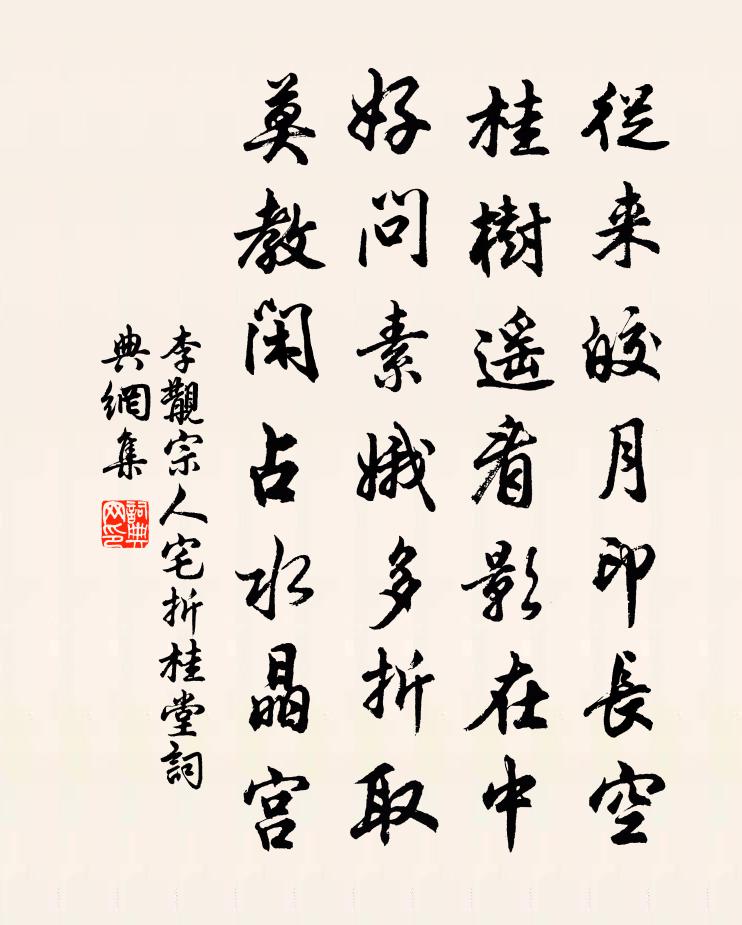 從来皎月印長空
桂樹遥看影在中
好問素娥多折取
莫教閑占水晶宫
李觀宗人宅折桂堂詞
典網集
詞典
网印